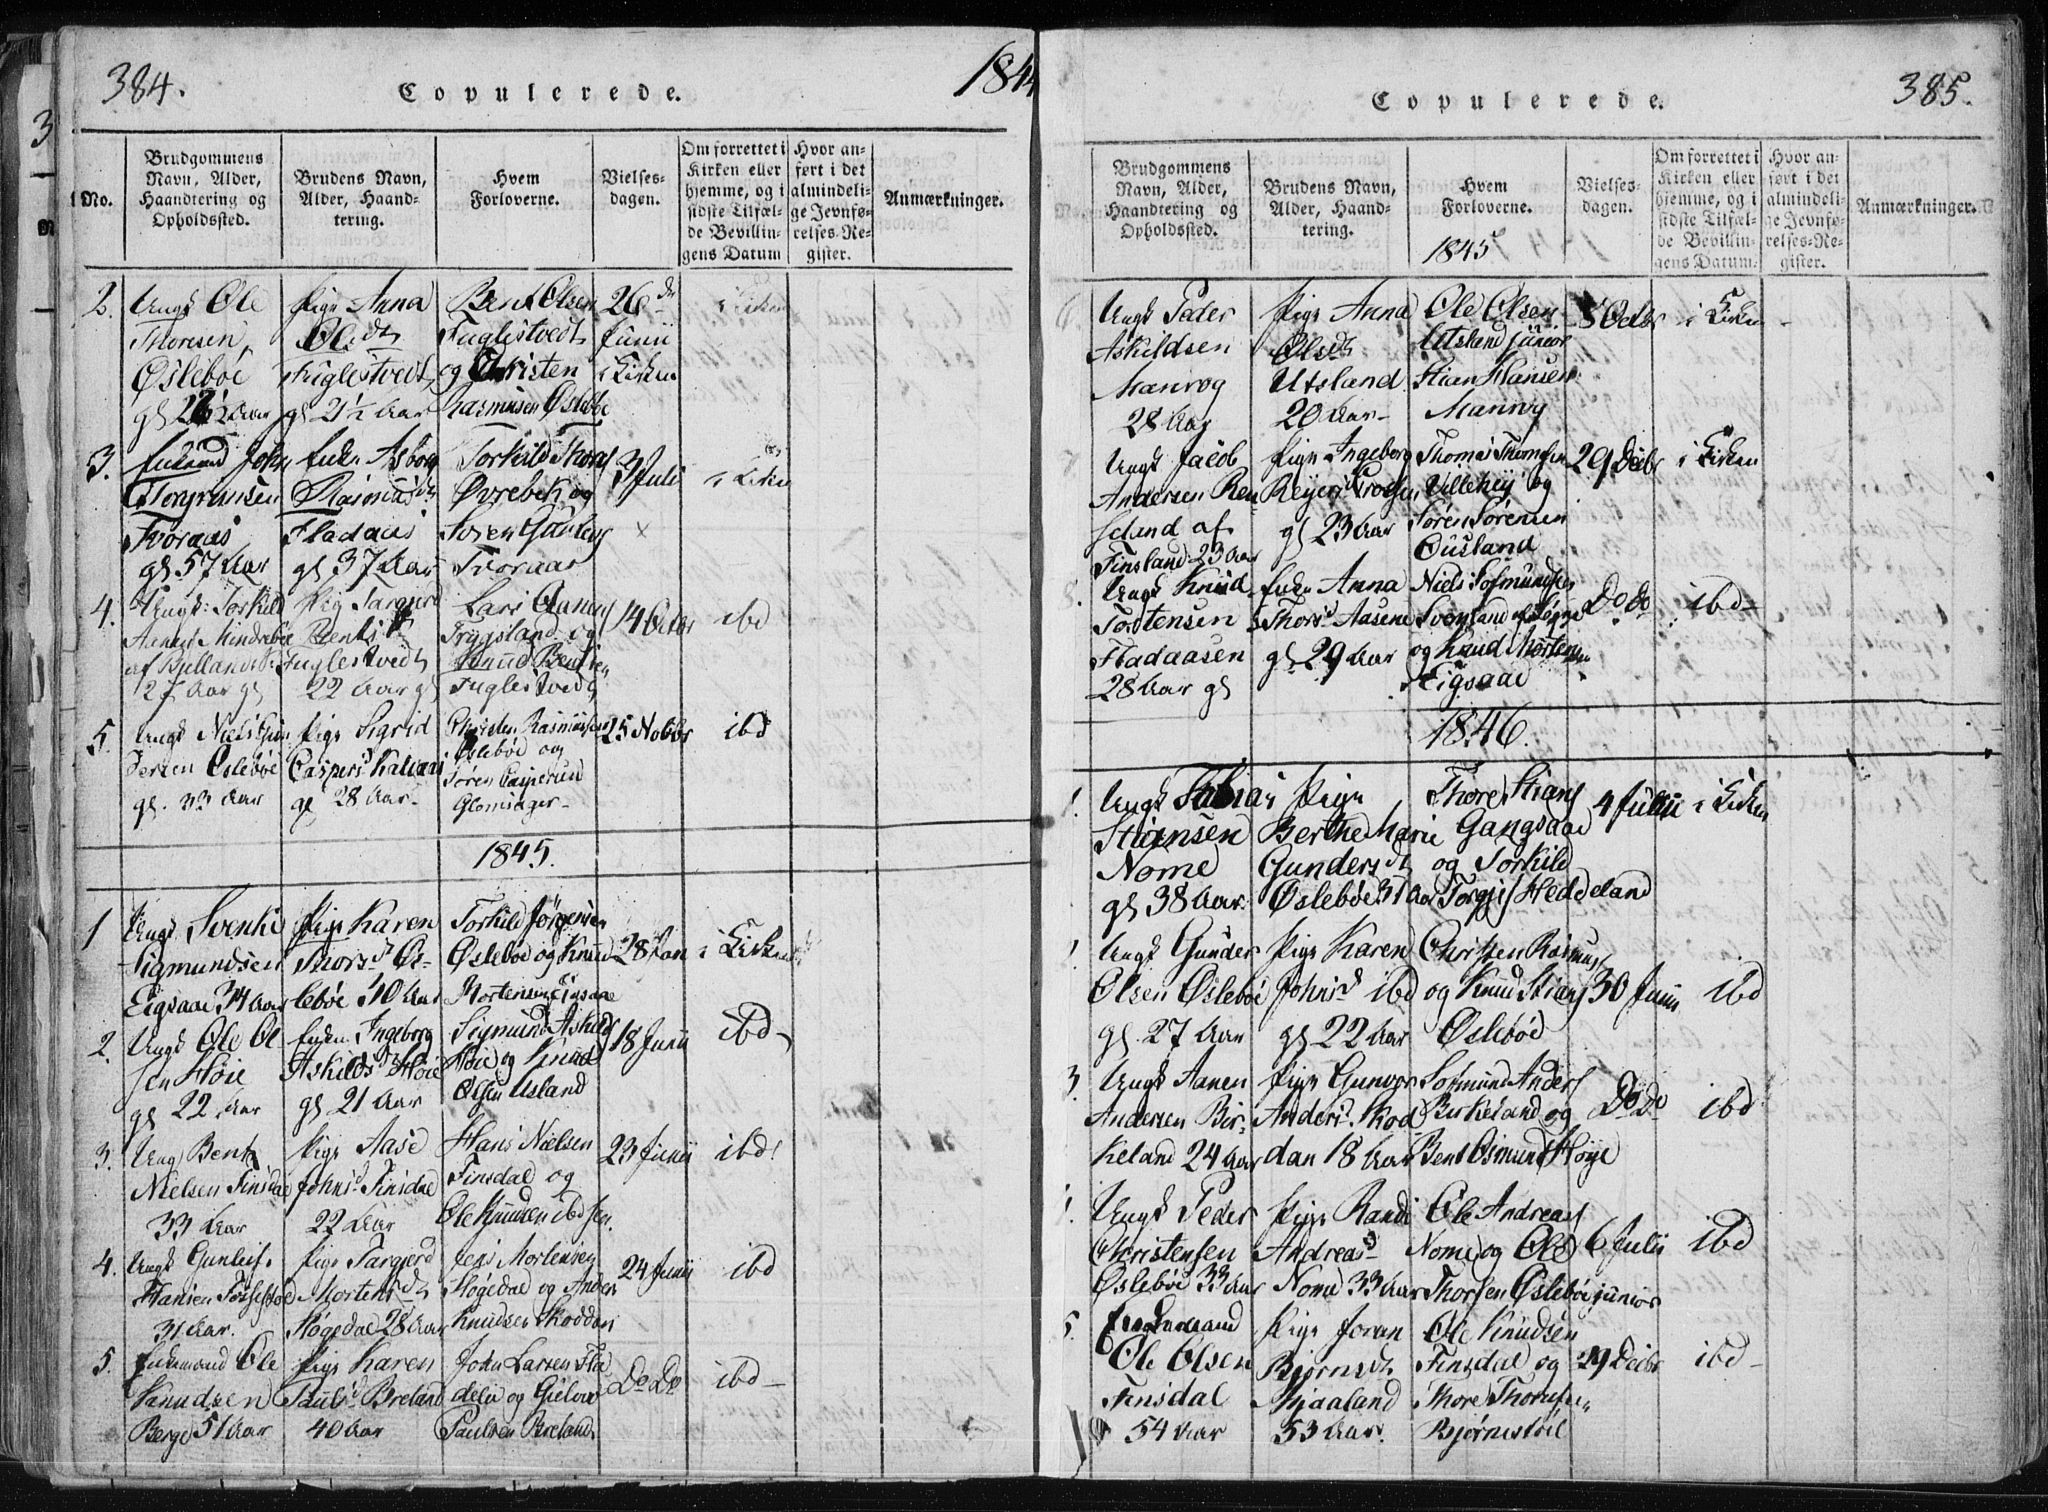 384.
Copulerede.
1844
No.
Brudgommens
Navn, Alder,
Haandtering og
Opholdssted.
Brudens Navn,
Alder, Haand-
tering.
Hvem
Forloverne.
Vielses-
dagen.
Om forrettet i
Kirken eller
hjemme, og i
sidste Tilfæl-
de Bevillin-
gens Datum
Hvor an-
ført i det
almindeli-
ge Jevnfø-
relses-Re-
gister.
Anmærkninger.
2.
Ungk Ole
Thoresen
Oslebøe
Pige Anna
Olsdt
Fuglestvedt
gl 21½ Aar
Bent Olsen
Fuglestvedt
og Christen
Rasmusen Oslebøe
26de
Junii
i Kirken
3.
Enkemand John
Torgrimsen
Tvoraas
gl 57 Aar
Enke Asborg
Rasmusdt
Fladaas
gl 37 Aar
Torkild Thors
Øvrebek og
Soren
Tvoraas
3 Juli
i Kirken
4.
Ungk: Torkild
Aanens Mindrebøe
af Bjelland
27 Aar gl
Pig Targjerd
Bentsdt
Fuglestvedt
22 Aar gl
Lars Aanens
Trygsland og
Knud Bentsen
Fuglestvedt
14 Octbr
ibd
5.
Ungk Niels
Oslebøe
gl. 33 Aar
Pige Sigrid
Caspersd Kalaas
gl 28 Aar.
Christen Rasmussen
Oslebøe og
Søren Caspersen
Glomsager
25 Nobbr
ibd
1845.
1
Ungk Svenke
Sigmundsen
Eigsaae 34 Aar
Pige Karen
Thorsd Os-
lebøe 40 Aar
Torkild Jørgensen
Oslebøe og Knud
Mortensen Eigsaae
28 Jan
i Kirken
2.
Ungk Ole Ol
sen Høie
gl 22 Aar
Enke Ingeborg
Askildsd Høie
gl 21 Aar
Sigmund Askilds
Høie og Knud
Olsen Usland
18 Junii
ibd
3.
Ung Bent
Nielsen Finsdal
33 Aar
Pige Aase
Johnsd Finsdal
22 Aar
Hans Nielsen
Finsdal og
Ole Knudsen ibd
23 Junii
ibd
4.
Ungk Gunleif
Hansen
31 Aar.
Pige Targjerd
Mortensdt
Høgedal 28 Aar
Jens Mortensen
Høgedal og Anders
Knudsen Skoddan
24 Junii
ibd
5.
Enkemand Ole
Knudsen
Berge 51 Aar
Pige Karen
Paulsd Breland
40 Aar
John Larsen Fla
delie og Gielow
Paulsen Breland
Do Do
ibd
385.
Copulerede.
Brudgommens
Navn, Alder,
Haandtering og
Opholdssted.
Brudens Navn,
Alder, Haand-
tering.
Hvem
Forloverne.
1845
Vielses-
dagen.
Om forrettet i
Kirken eller
hjemme, og i
sidste Tilfæl-
de Bevillin-
gens Datum.
Hvor an-
ført i det
almindeli-
ge Jevnfø-
relses-Re-
gister.
Anmærkninger.
Ungk Peder
Askildsen
Manrog
28 Aar
Pige Anna
Olsdt
Utsland
20 Aar
Ole Olsen
Utsland junior
Stian Hansen
5 Octbr
i Kirken
Ungk Jacob
Andersen Ren
seland af
Finsland 23 Aar
Pige Ingeborg
gl 23 Aar
Thomas Thomsen
Villehøy og
Søren Sørensen
Ousland
29 Decbr
i Kirken
Ungk Knud
Torstensen
Fladaasen
28 Aar gl
Enke Anna
Thorsd Aasene
gl 29 Aar
Niels Sofmundsen
og Knud Mortensen
Eigsaae
Do Do
ibd
1846.
1.
Ungk Tobias
Stiansen
Nome
gl 38 Aar
Pige
Berthe Marie
Gundersdt
Oslebøe 37 Aar
Thore Stians
Gangsaae
og Torkild
Torgjus Heddeland
4 Junii
i Kirken
Ungk Gunder
Olsen Oslebøe
gl. 27 Aar
Pige Karen
Johnsd ibd
gl 22 Aar
Christen Rasmus
og Knud Stians
Oslebøe
30 Junii
ibd
3.
Ungk Aanen
Andersen Bir-
keland 24 Aar
Pige Gunvor
Andersd. Skod
dan 18 Aar
Sofmund Anders
Birkeland og
Bent Osmunds Høye
Do Do
ibd
Ungk Peder
Christensen
Oslebøe 33 Aar
Pige Randi
Andreasd
Nome 33 Aar
Ole Andreas
Nome og Ole
Thorsen Oslebøe junior
6 Julii
ibd
5.
Enkemand
Ole Olsen
Finsdal
54 Aar
Pige Joran
Bjørnsdt
Mjaaland
53 Aar.
Ole Knudsen
Finsdal og
Thore Thorsen
Bjørnestøl
29 Decbr
ibd